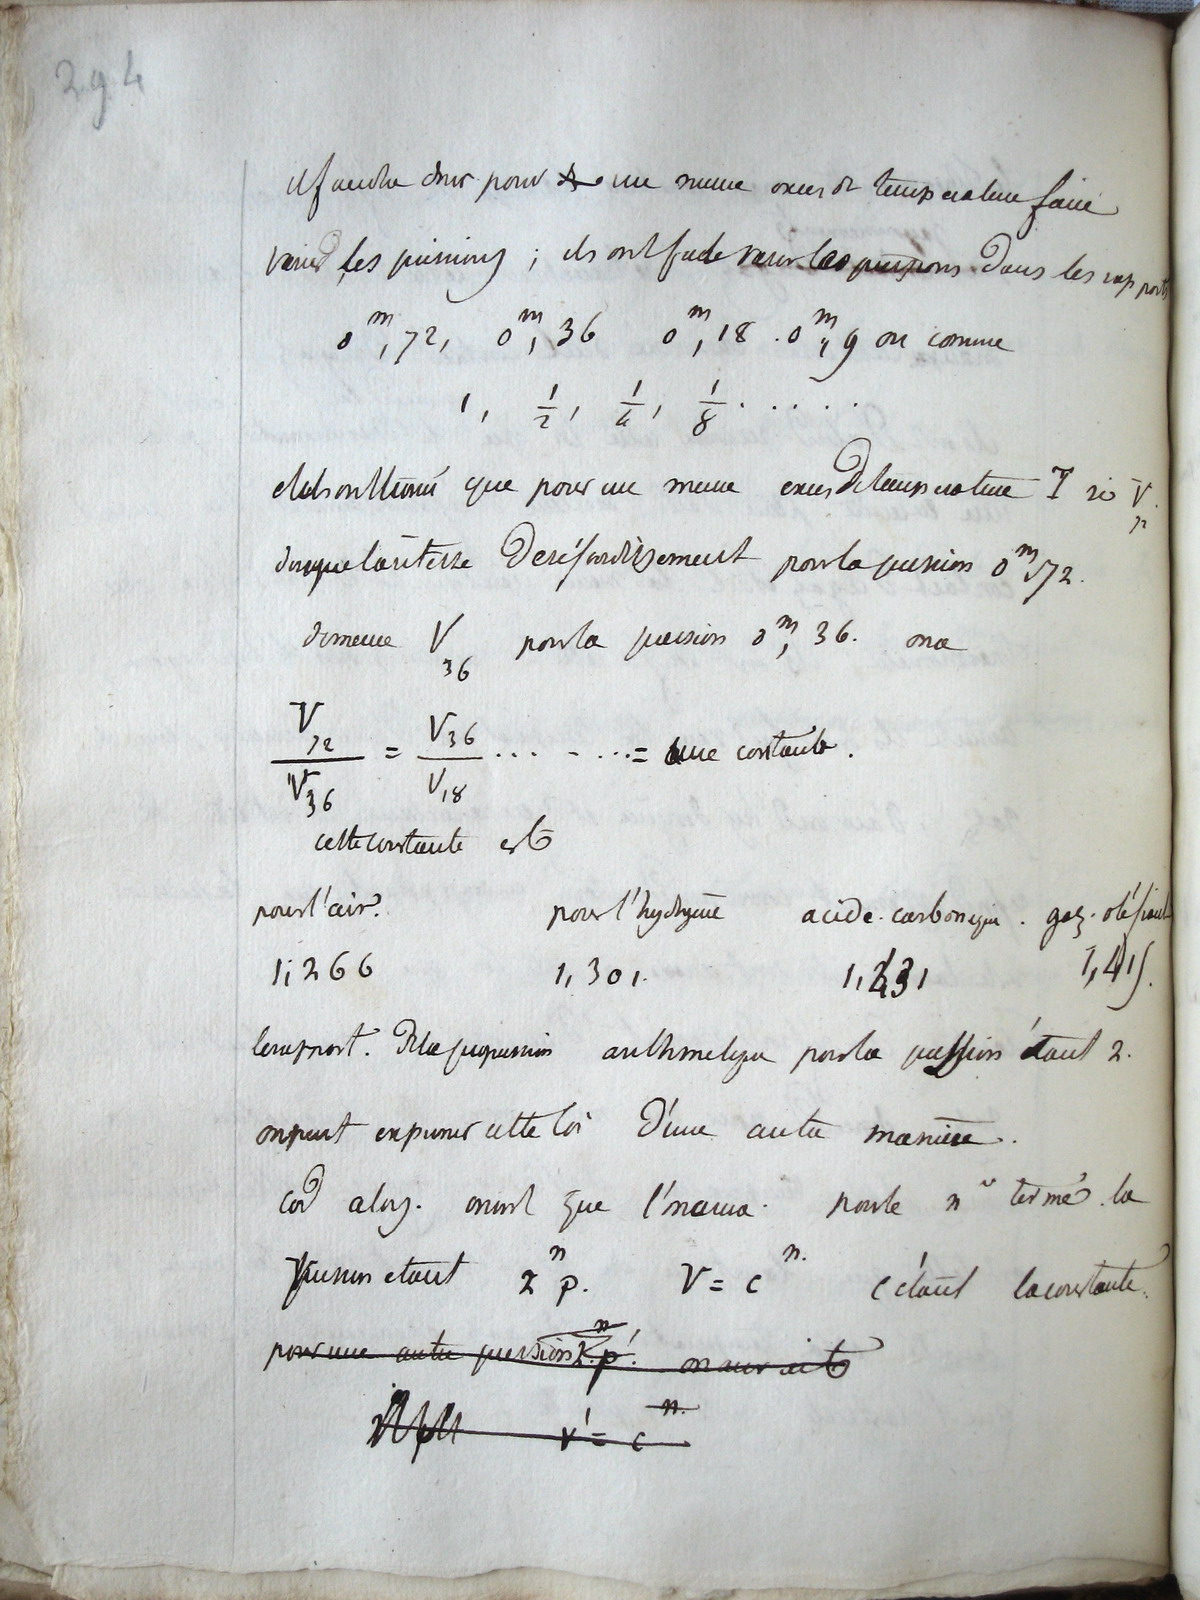 294
il faudra donc pour une meme exces de temperature faire
varier les pressions ; ils ont fait varier les pressions dans les rapports
0^m,72, 0^m,36 0^m,18 . 0^m,9 ou comme
1, 1/2, 1/4, 1/8 . . . . .
et ils ont trouvé que pour une meme exces de temperature T si V_72
marque la vitesse de refroidissement pour la pression 0^m,72.
de meme V_36 pour la pression 0^m,36. on a
V_72/V_36 = V_36/V_18 ... - ... = une constante.
cette constante est
pour l'air. pour l'hydrogene acide carbonique . gaz oléfiant
1,266 1,301. 1,431 1,415.
le rapport. de la progression arithmetique pour la pression étant 2.
on peut exprimer cette loi d'une autre maniere.
car alors. on voit que l'on aura pour le n^e terme la
pression etant 2^n p. V = c^n. c étant la constante.
pour une autre pression 2^n p'. on aurait
v' = c^n.